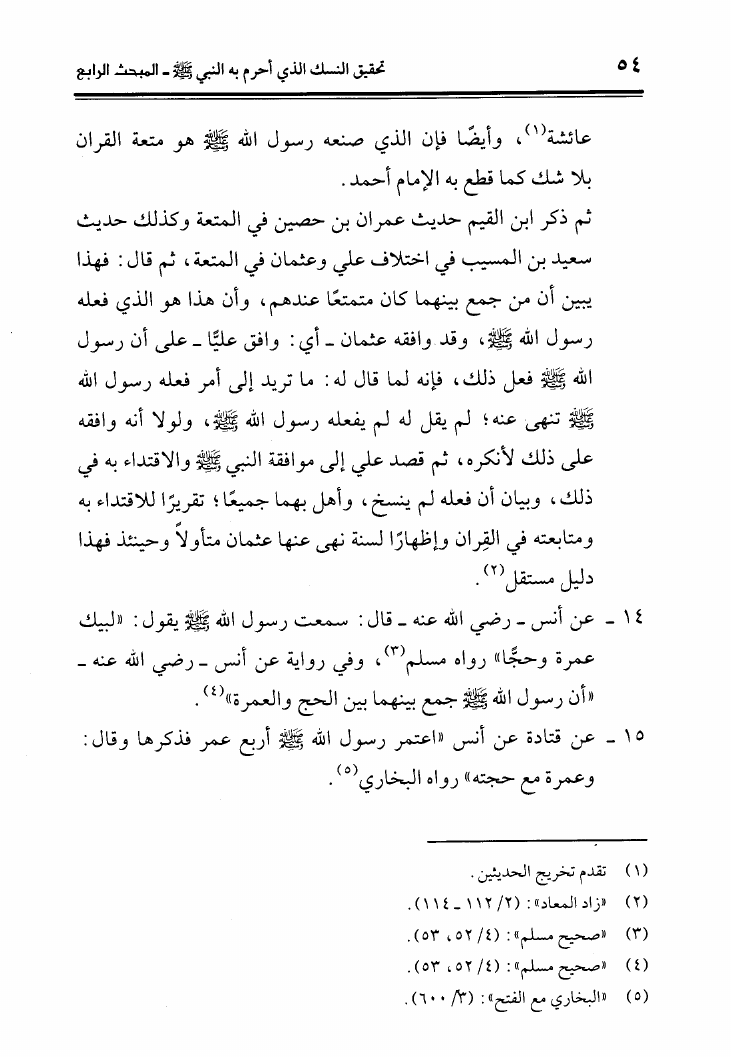 ٥٤ تحقيق النسك الذي أحرم به النبي ﷺ ـ المبحث الرابع
عائشة(١)، وأيضًا فإن الذي صنعه رسول الله ﷺ هو متعة القران
بلا شك كما قطع به الإمام أحمد.
ثم ذكر ابن القيم حديث عمران بن حصين في المتعة وكذلك حديث
سعيد بن المسيب في اختلاف علي وعثمان في المتعة، ثم قال: فهذا
يبين أن من جمع بينهما كان متمتعًا عندهم، وأن هذا هو الذي فعله
رسول الله ﷺ، وقد وافقه عثمان ـ أي: وافق عليًّا ـ على أن رسول
الله ﷺ فعل ذلك، فإنه لما قال له: ما تريد إلى أمر فعله رسول الله
ﷺ تنهى عنه؛ لم يقل له لم يفعله رسول الله ﷺ، ولولا أنه وافقه
على ذلك لأنكره، ثم قصد علي إلى موافقة النبي ﷺ والاقتداء به في
ذلك، وبيان أن فعله لم ينسخ، وأهل بهما جميعًا؛ تقريرًا للاقتداء به
ومتابعته في القِران وإظهارًا لسنة نهى عنها عثمان متأولاً وحينئذ فهذا
دليل مستقل(٢).
١٤ ـ عن أنس ـ رضي الله عنه ـ قال: سمعت رسول الله ﷺ يقول: «لبيك
عمرة وحجًّا» رواه مسلم(٣)، وفي رواية عن أنس ـ رضي الله عنه ـ
«أن رسول الله ﷺ جمع بينهما بين الحج والعمرة»(٤).
١٥ ـ عن قتادة عن أنس «اعتمر رسول الله ﷺ أربع عمر فذكرها وقال:
وعمرة مع حجته» رواه البخاري(٥).
(١) تقدم تخريج الحديثين.
(٢) «زاد المعاد»: (٢/ ١١٢ ـ ١١٤).
(٣) «صحيح مسلم»: (٤/ ٥٢، ٥٣).
(٤) «صحيح مسلم»: (٤/ ٥٢، ٥٣).
(٥) «البخاري مع الفتح»: (٣/ ٦٠٠).